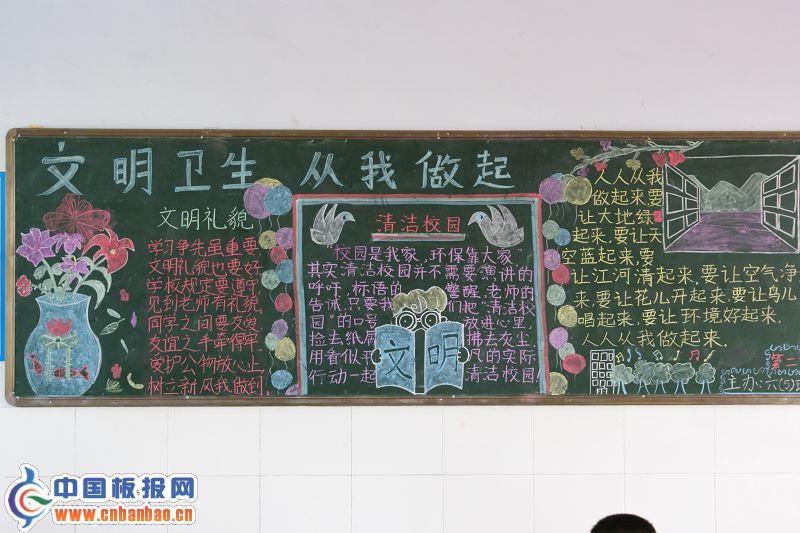 文明卫生 从我做起
文明礼貌
学习争先虽重要
文明礼貌也要好
学校规定要遵守
见到老师有礼貌
同学之间要友爱
友谊之手牵得牢
爱护公物放心上
树立新风我做到
清洁校园
“校园是我家,环保靠大家”
其实清洁校园并不需要演讲的
呼吁,标语的 警醒,老师的
告诫,只要我 们把“清洁校
园”的口号 放进心里,
捡去纸屑 拂去灰尘
用看似平 凡的实际
行动一起 清洁校园!
文明
人人从我
做起来,要
让大地绿
起来,要让天
空蓝起来,要
让江河清起来,要让空气净
来,要让花儿开起来,要让鸟儿
唱起来,要让环境好起来.
人人从我做起来.
第二
主办:六(7)
中国板报网
www.cnbanbao.cn